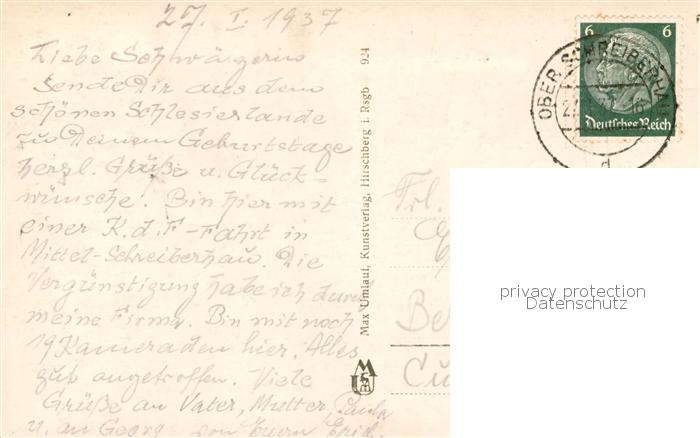 27. I. 1937
Liebe Schwägerin
Sende Dir aus dem
schönen Schlesierlande
zu Deinem Geburtstage
herzl. Grüße u. Glück-
wünsche. Bin hier mit
einer K.d.F-Fahrt in
Mittel-Schreiberhau. Die
Vergünstigung habe ich durch
meine Firma. Bin mit noch
19 Kameraden hier. Alles
gut angetroffen. Viele
Grüße an Vater, Mutter, Paula
u. an Georg von Euern
924
Max Umlauf, Kunstverlag, Hirschberg i. Rsgb
6 6
Deutsches Reich
OBER SCHREIBERHAU
d
Frl.
Be
privacy protection
Datenschutz